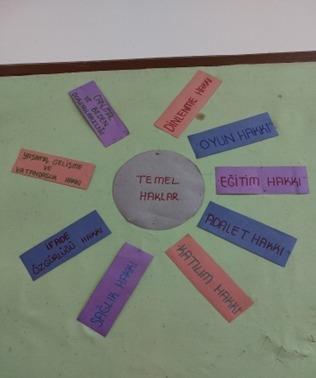 TEMEL
HAKLAR
DİNLENME HAKKI
OYUN HAKKI
EĞİTİM HAKKI
ADALET HAKKI
KATILIM HAKKI
SAĞLIK HAKKI
İFADE
ÖZGÜRLÜĞÜ HAKKI
YAŞAMA, GELİŞME
VE VATANDAŞLIK HAKKI
VE BEDEN
DOKUNULMAZLIĞI